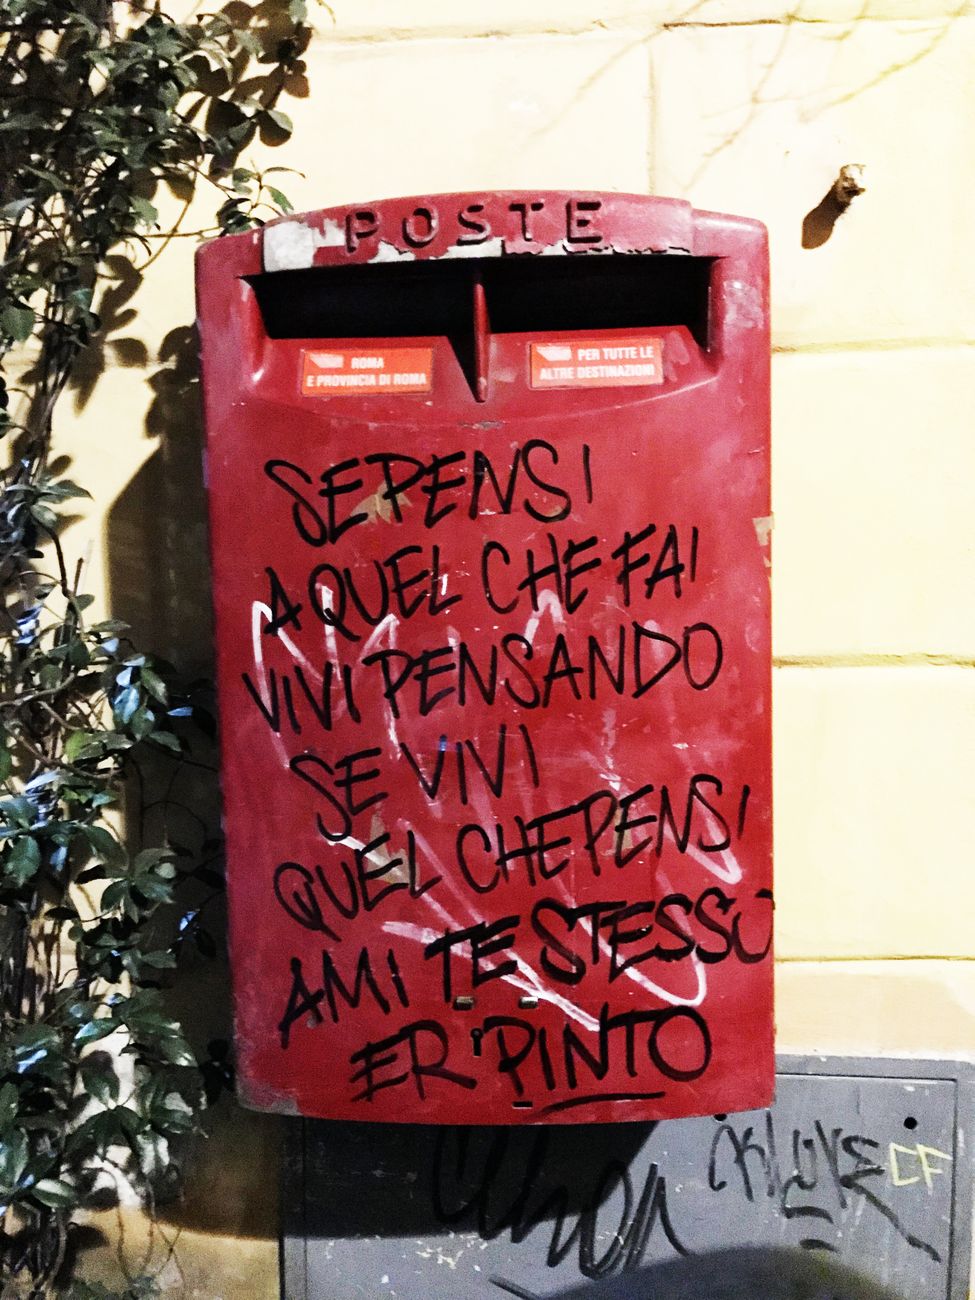 POSTE
ROMA
E PROVINCIA DI ROMA
PER TUTTE LE
ALTRE DESTINAZIONI
SE PENSI
A QUEL CHE FAI
VIVI PENSANDO
SE VIVI
QUEL CHE PENSI
AMI TE STESSO
ER PINTO
CF